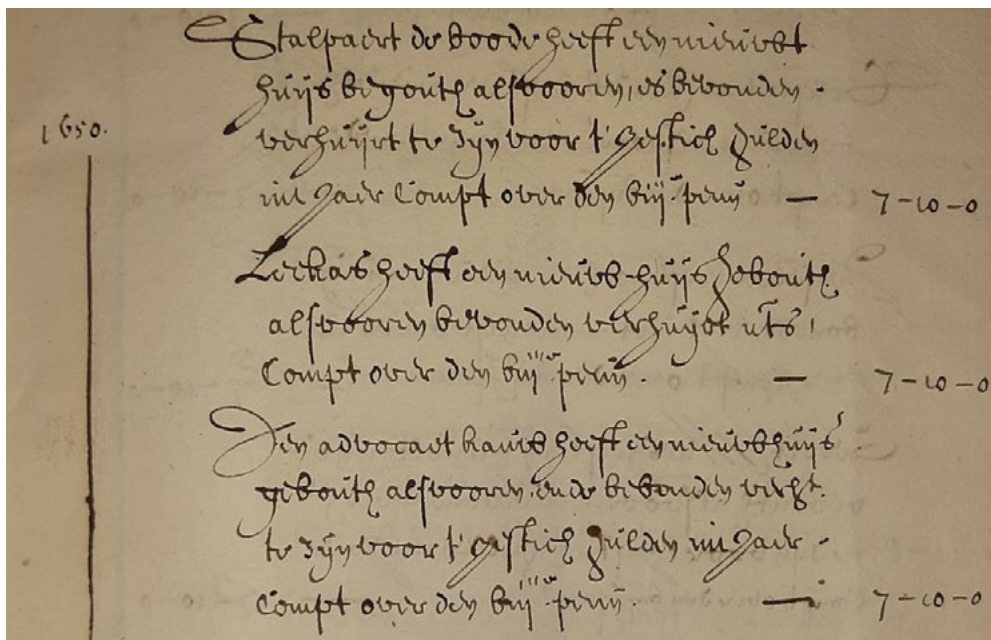 Stalpaert de boode heeft een nieuwt
huijs begouth alsvooren, es bevonden
1650.
verhuijrt te zijn voor t'sestich gulden
int Jaer Compt over den viij.en penn — 7-10-0
Leckas heeft een nieuw huijs gebouth
alsvooren bevonden verhuijrt uts
Compt over den viij.en penn. — 7-10-0
Den advocaet kauw heeft een nieuwhuijs
gebouth alsvooren, ende bevonden verht.
te zijn voor t'sestich gulden int Jaer
Compt over den viij.en penn. — 7-10-0